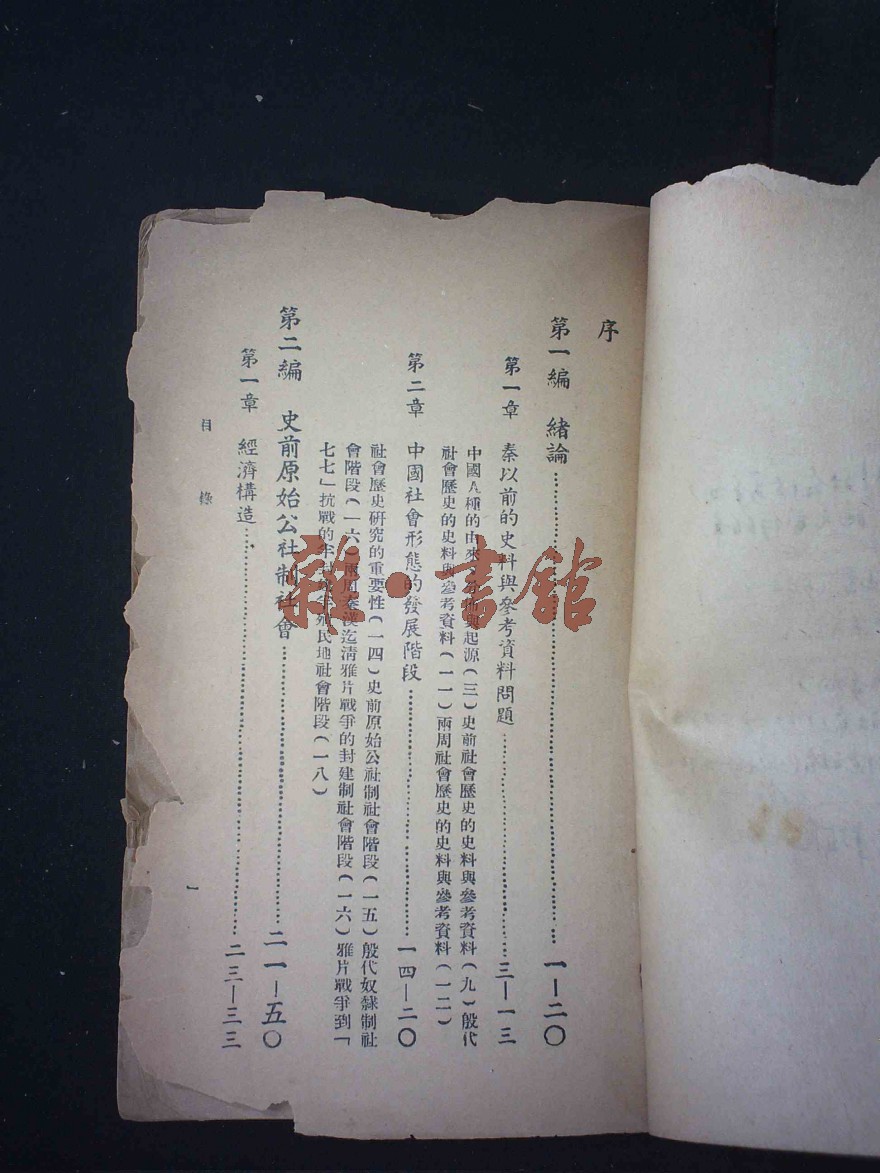 序
第一編　緒論……一—二〇
第一章　秦以前的史料與參考資料問題……三—一三
中國人種的由來 起源(三)史前社會歷史的史料與參考資料(九)殷代
社會歷史的史料與參考資料(一一)兩周社會歷史的史料與參考資料(一二)
第二章　中國社會形態的發展階段……一四—二〇
社會歷史研究的重要性(一四)史前原始公社制社會階段(一五)殷代奴隸制社
會階段(一六)兩周秦漢迄清雅片戰爭的封建制社會階段(一六)雅片戰爭到「
七七」抗戰的半封 殖民地社會階段(一八)
第二編　史前原始公社制社會……二一—五〇
第一章　經濟構造……二三—三三
目錄
一
雜·書館